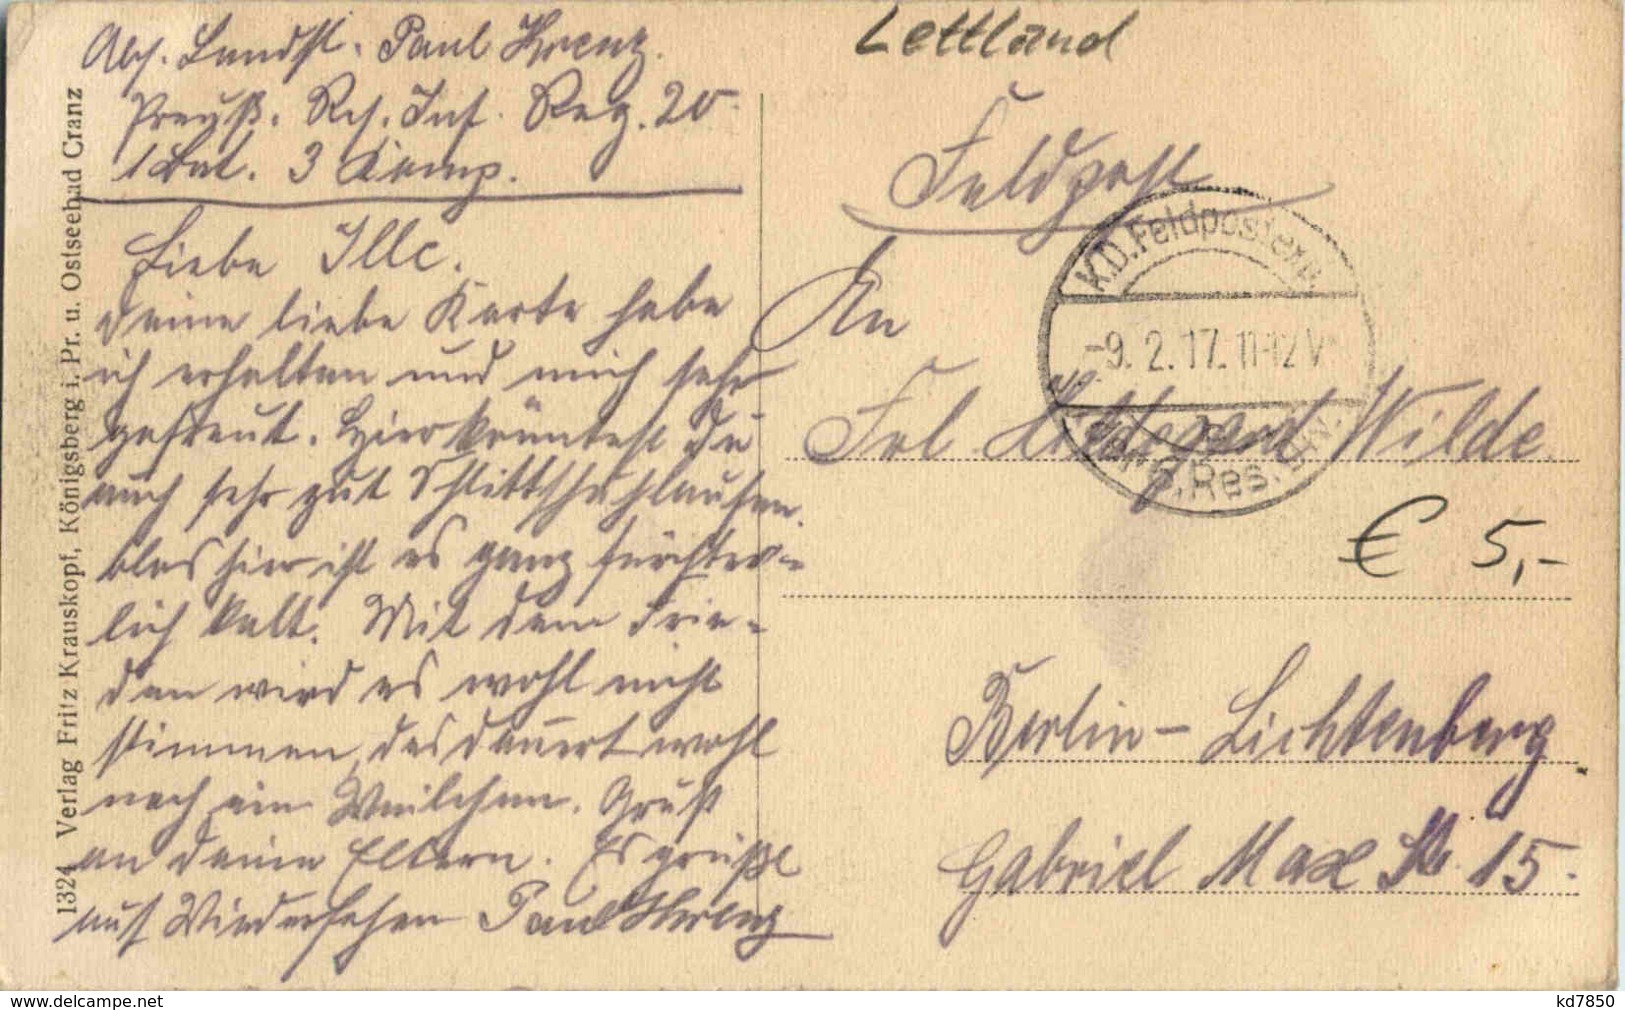 Abs. Landst. Paul Krenz.
Preuß. Res. Inf. Reg. 20
1 Bat. 3 Komp.
Liebe Ille.
Deine liebe Karte habe
ich erhalten und mich sehr
gefreut. Hier könntest Du
auch sehr gut Schlittschuhlaufen.
blos hier ist es ganz fürchter-
lich kalt. Mit dem Frie-
den wird es wohl nicht
stimmen, das dauert wohl
noch ein Weilchen. Gruß
an deine Eltern. Es grüßt
auf Wiedersehen Paul Krenz
1324 Verlag Fritz Krauskopf, Königsberg i. Pr. u. Ostseebad Cranz
Lettland
Feldpost
K.D. Feldpostexp.
-9. 2. 17. 11-12 V
Res. Div.
An
Frl Wilde
€ 5,-
Berlin-Lichtenberg
Gabriel Max Str. 15.
www.delcampe.net
kd7850